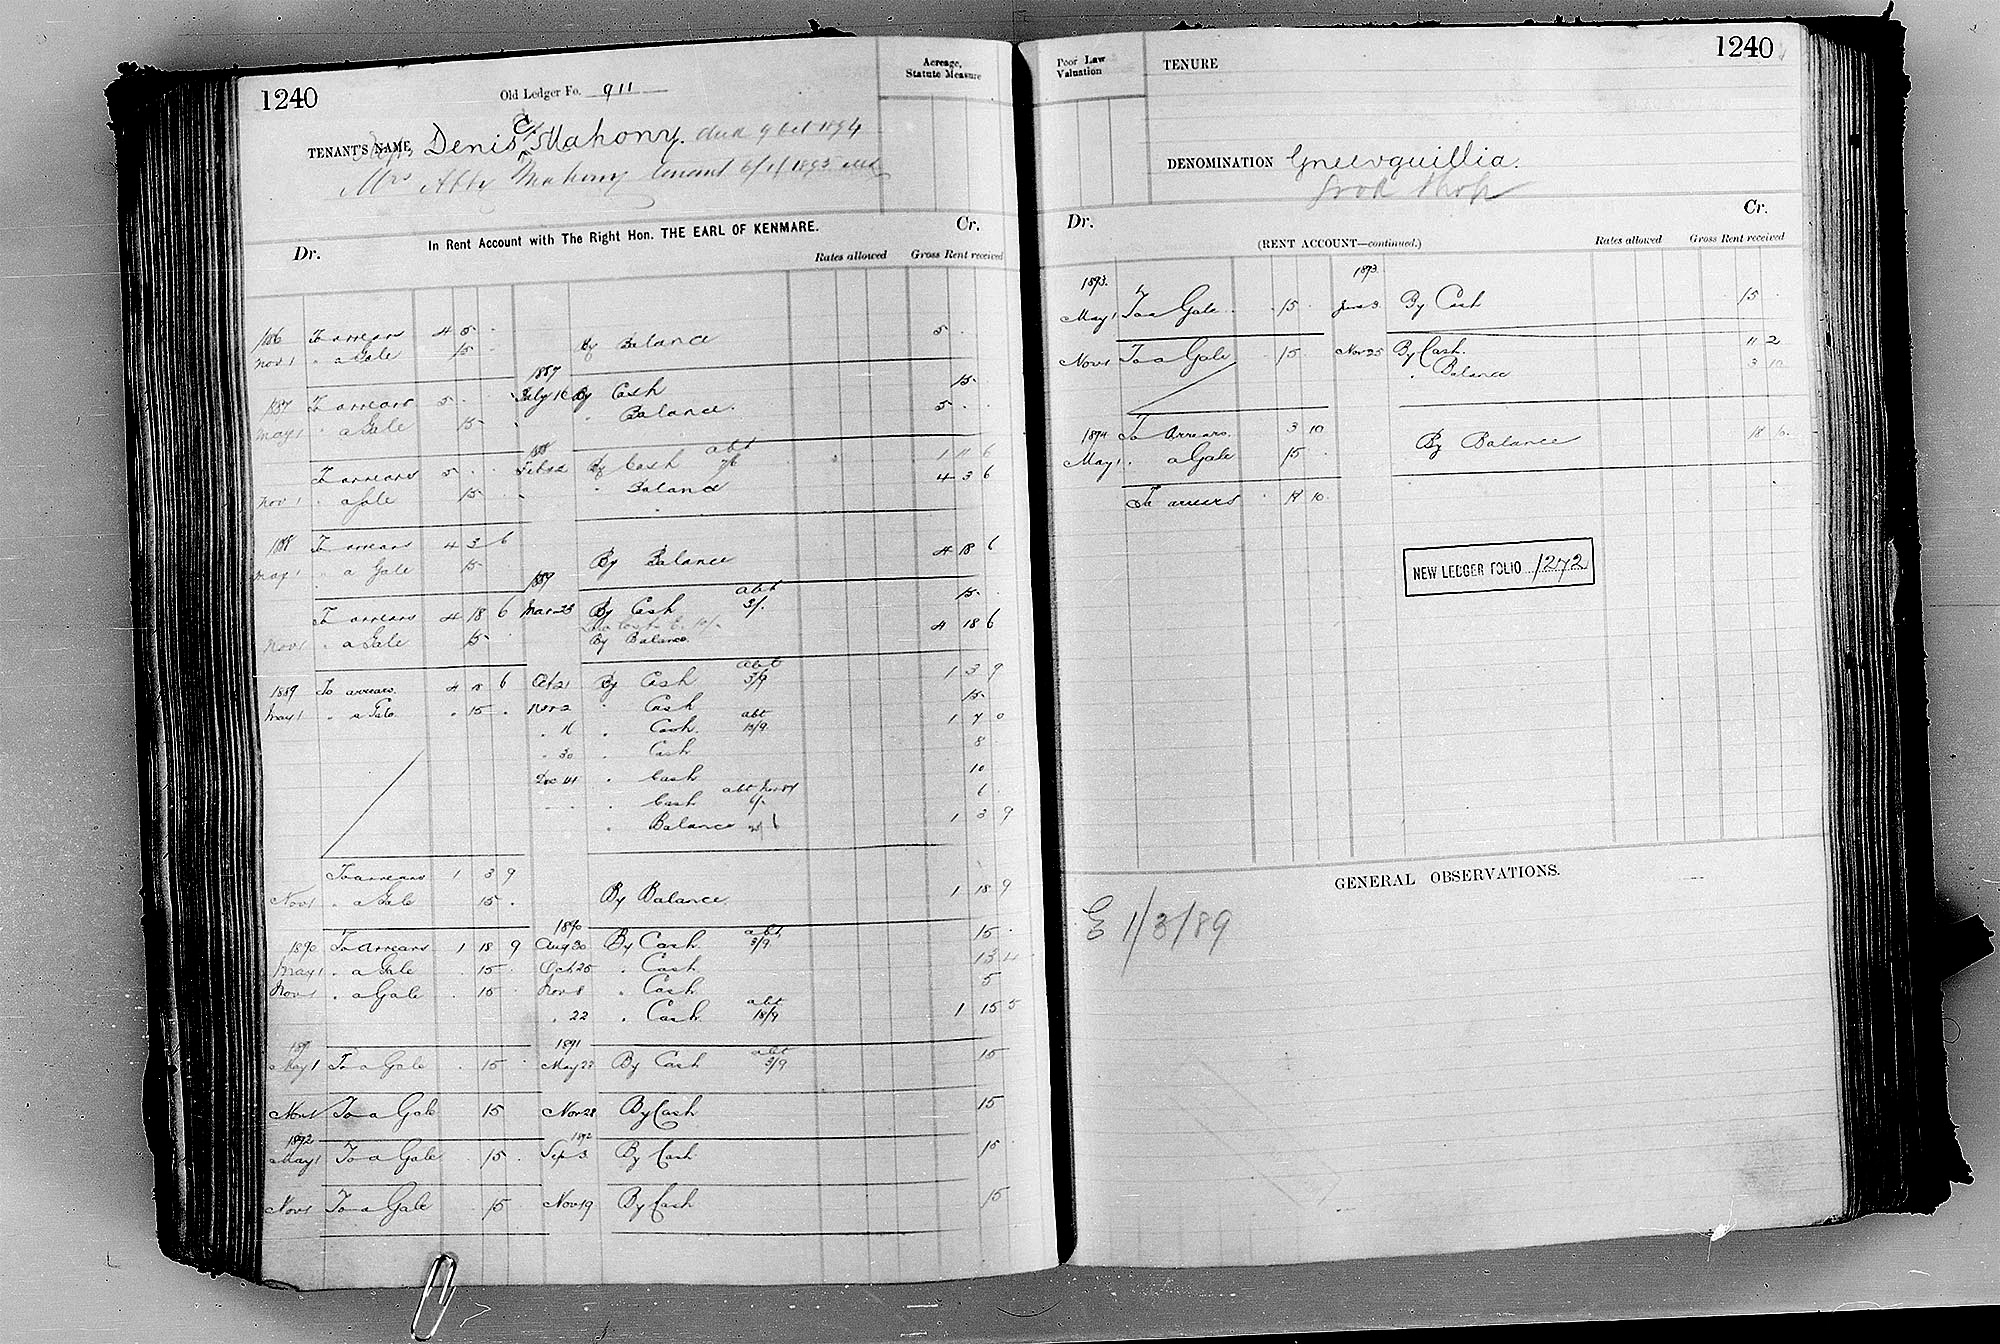 1240
Old Ledger Fo. 911
Acreage, Statute Measure
TENANT'S NAME Denis C. Mahony. died 9 Oct 1894
Mrs Abby Mahony tenant 6/1/1895
In Rent Account with The Right Hon. THE EARL OF KENMARE.
Dr. Cr.
Rates allowed Gross Rent received
1886 To arrears 4 5 . By Balance 5 . .
Nov 1 " a Gale 15 .
1887
1887 To arrears 5 . . July 16 By Cash 15 .
May 1 " a Gale 15 . " Balance. 5 . .
1888 abt
To arrears 5 . . Feb 12 By Cash 7/6 1 11 6
Nov 1 " a Gale 15 . " Balance 4 3 6
1888 To arrears 4 3 6
May 1 " a Gale 15 . By Balance 4 18 6
1889 abt
To arrears 4 18 6 Mar 23 By Cash 3/. 15 .
Nov 1 " a Gale 15 . By Balance. 4 18 6
abt
1889 To arrears. 4 18 6 Oct 21 By Cash 3/9 1 3 9
May 1 " a Gale . 15 . Nov 2 " Cash 15 .
" 16 " Cash. abt 18/9 1 7 0
" 30 " Cash 8 .
Dec 14 " Cash 10
" Cash abt 6/- 6 .
" Balance 1 3 9
To arrears 1 3 9
Nov 1 " a Gale 15 . By Balance. 1 18 9
1890 abt
1890 To Arrears 1 18 9 Aug 30 By Cash 3/9 15 .
May 1 " a Gale . 15 . Oct 25 " Cash 13 4
Nov 1 " a Gale . 15 . Nov 8 " Cash 5
" 22 " Cash abt 18/9 1 15 5
1891 1891 abt
May 1 To a Gale . 15 . May 23 By Cash 3/9 15
Nov 1 To a Gale 15 Nov 28 By Cash 15
1892 1892
May 1 To a Gale . 15 . Sep 3 By Cash 15
Nov 1 To a Gale . 15 Nov 19 By Cash 15
Poor Law Valuation
TENURE
1240
DENOMINATION Gneevguillia.
Dr. Cr.
(RENT ACCOUNT—continued.)
Rates allowed Gross Rent received
1893. 1893.
May 1 To a Gale . 15 . June 3. By Cash 15 .
Nov 1 To a Gale . 15 . Nov 25 By Cash. 11 2
" Balance 3 10
1894 To Arrears. 3 10 By Balance 18 10
May 1 " a Gale 15 .
To arrears . 18 10
NEW LEDGER FOLIO 1272
GENERAL OBSERVATIONS.
E 1/3/89